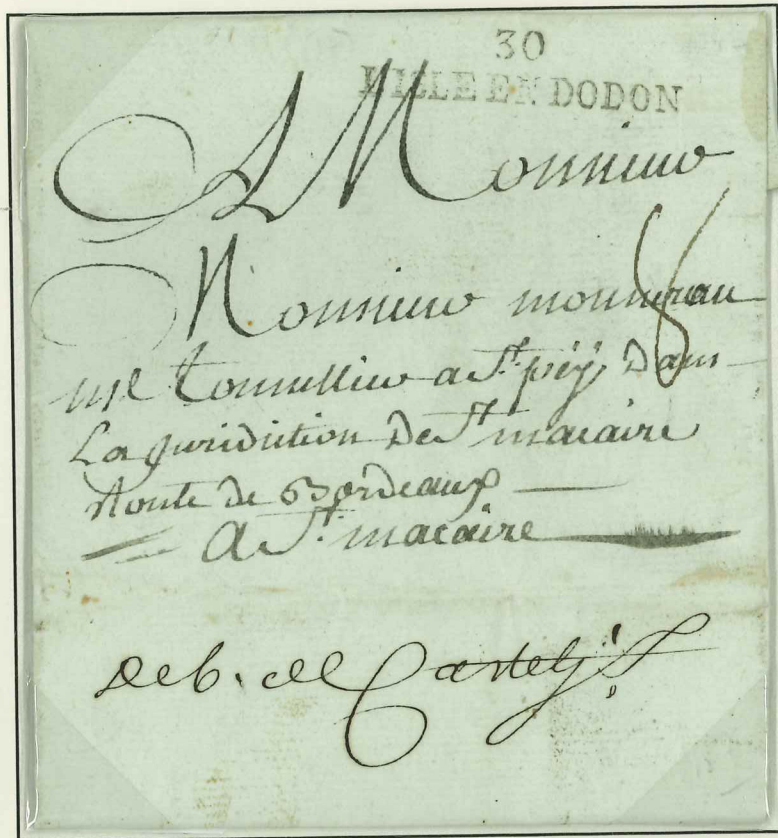 30
L'ISLE EN DODON
A Monsieur
Monsieur
8
a St. pey Dans
La Juridiction De St. macaire
Route de Bordeaux
A St. macaire
deb. de Castelj.